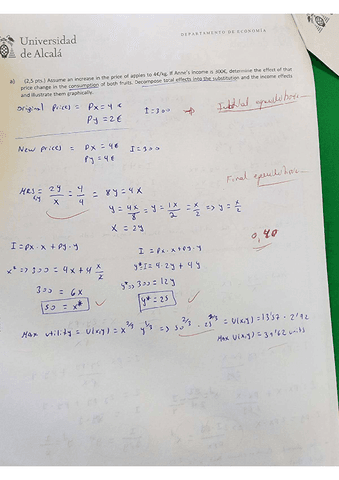 Universidad
de Alcalá
DEPARTAMENTO DE ECONOMÍA
a) (2,5 pts.) Assume an increase in the price of apples to 4€/kg. If Anne's income is 300€, determine the effect of that
price change in the consumption of both fruits. Decompose total effects into the substitution and the income effects
and illustrate them graphically.
Original Prices = Px = 4€ I=300 → Initial equilibrium
Py = 2€
New prices = Px = 4€ I=300
Py = 4€
Final equilibrium
MRS = 2y/x = 4/4 = 8y = 4x
y = 4x/8 = y = 1x/2 = x/2 => y = x/2
x = 2y
0,40
I = Px · x + Py · y
I = Px·x+Py·y
x* => 300 = 4x + 4 x/2
y* I = 4·2y + 4y
300 = 6x
y* => 300 = 12y
50 = x*
y* = 25
Max utility = U(x,y) = x^2/3 y^1/3 => 50^2/3 · 25^1/3 = U(x,y) = 13'57 · 2'92
Max U(x,y) = 39'62 units